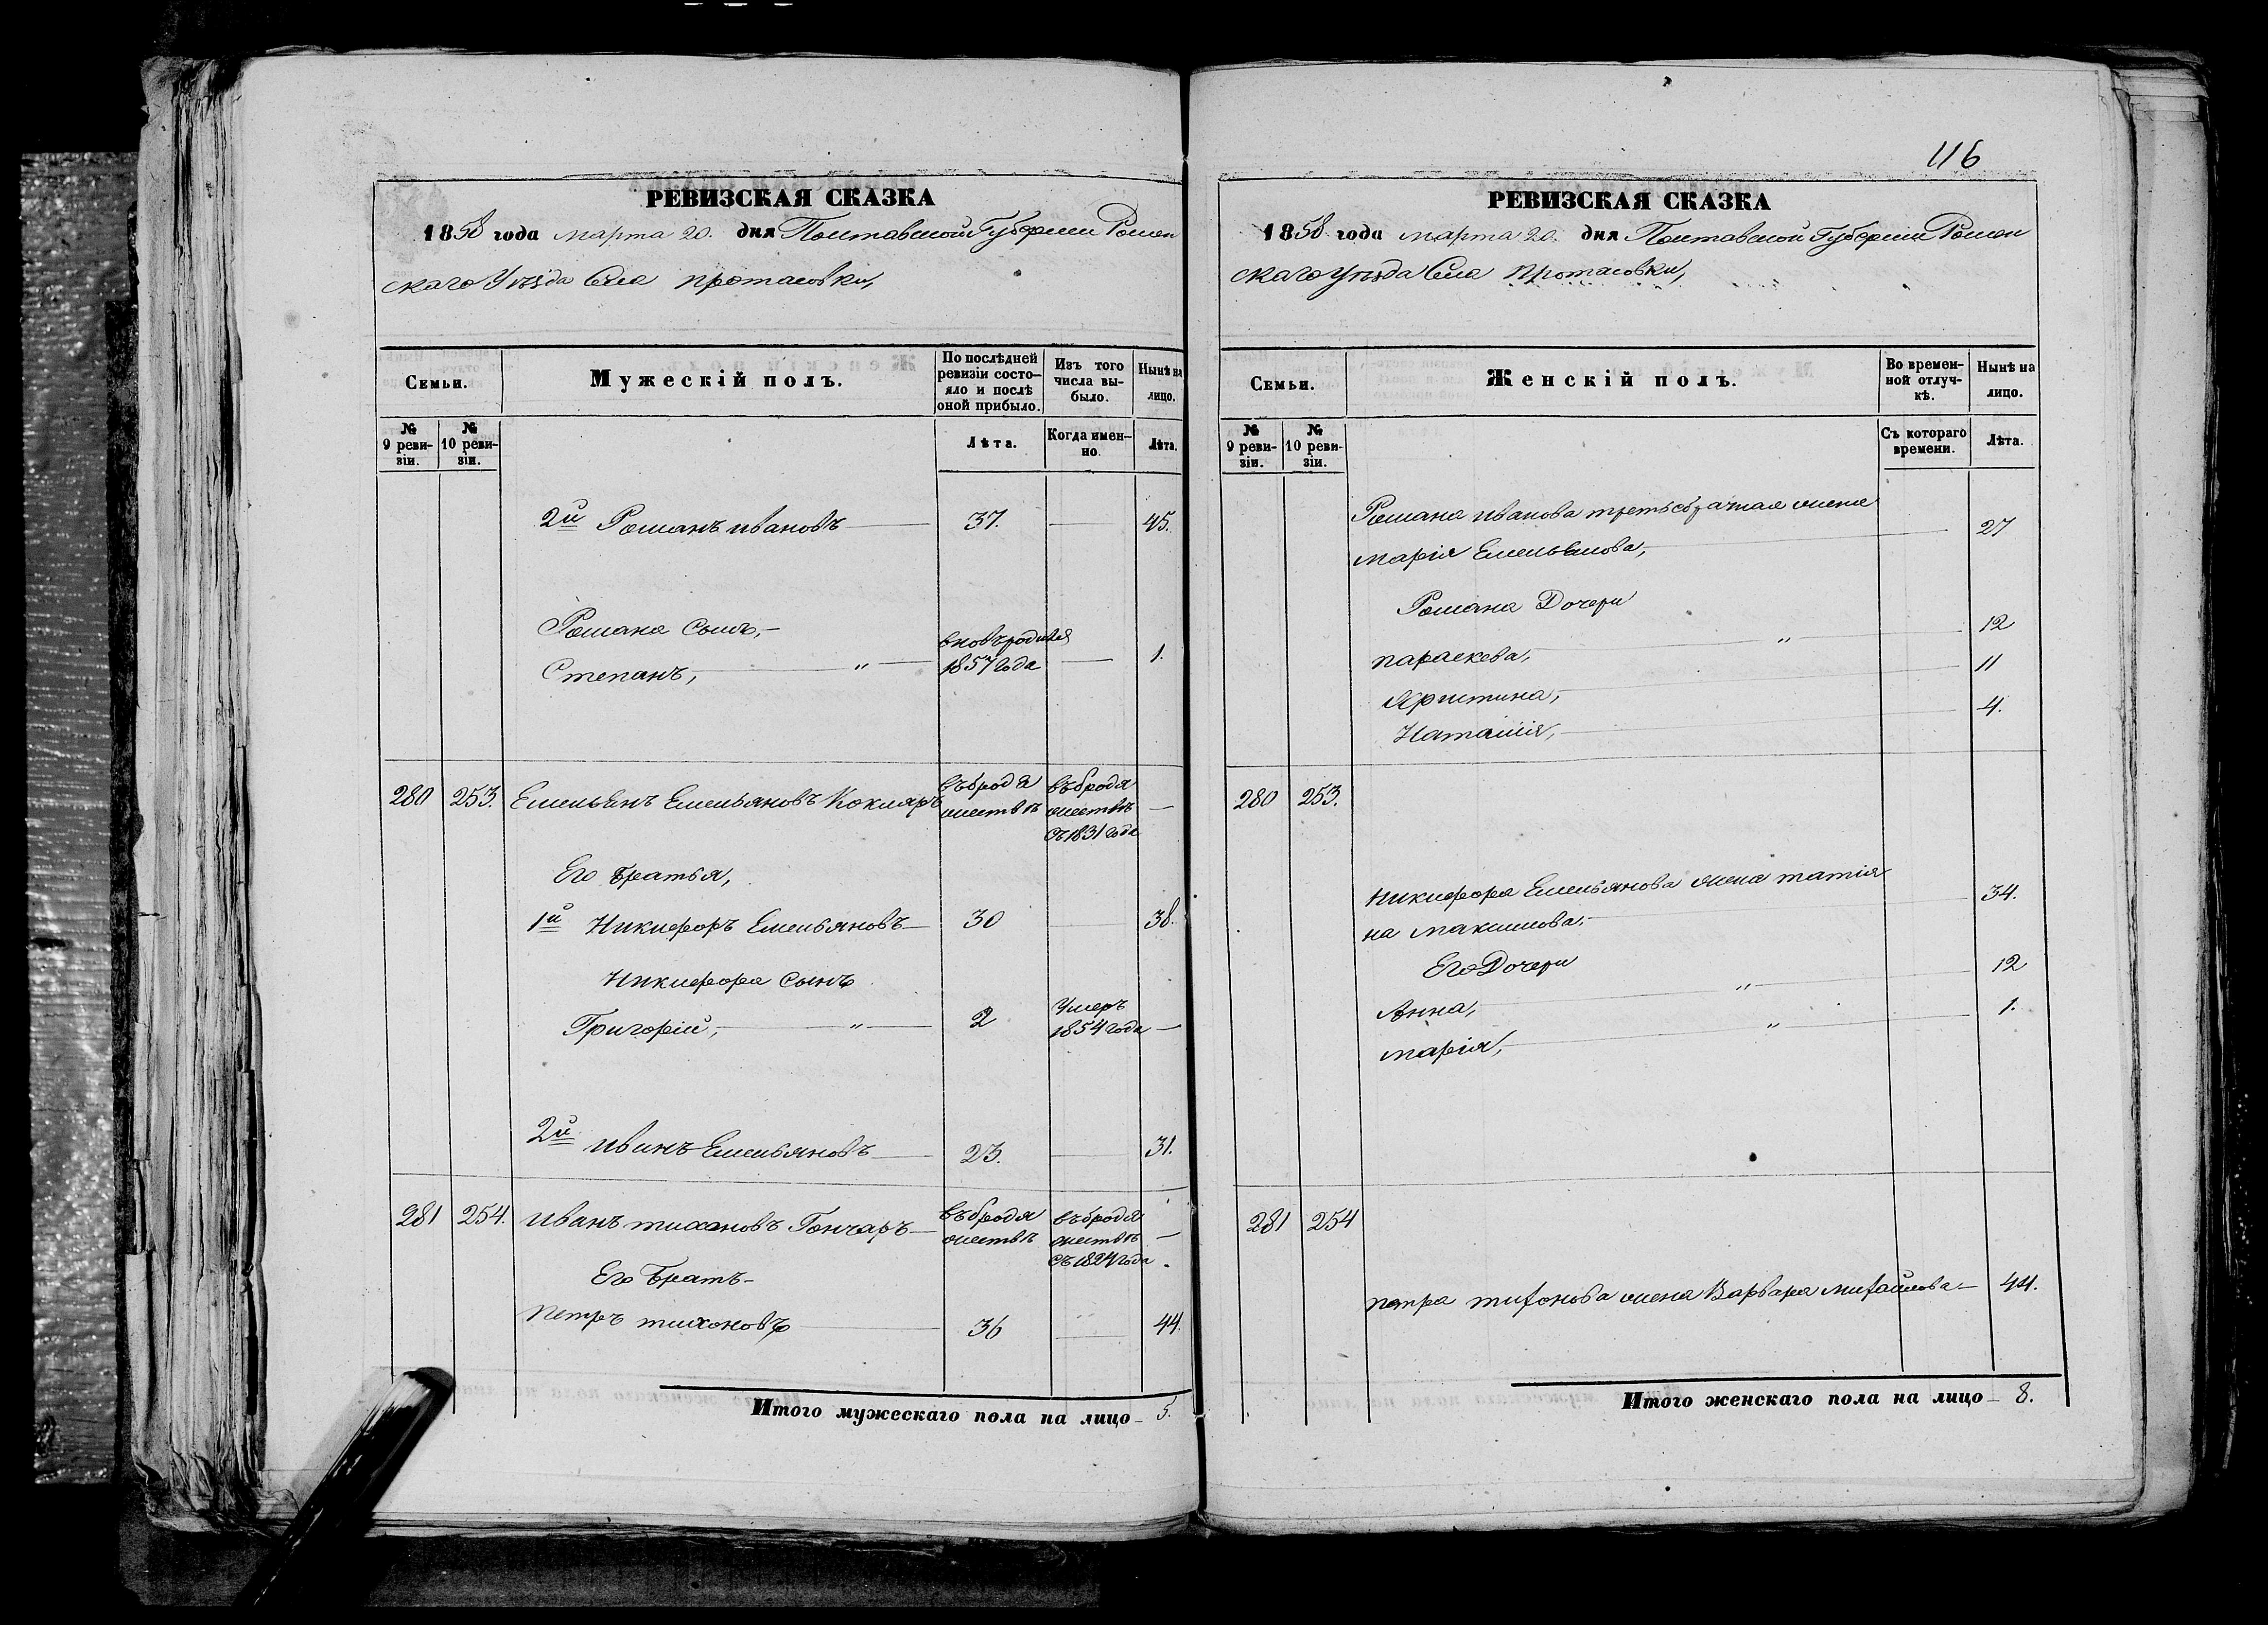 РЕВИЗСКАЯ СКАЗКА
1858 года марта 20. дня Полтавской Губернии Ромен
скаго Уѣзда Села Протасовки,
Семьи.
Мужескій полъ.
По послѣдней
ревизіи состо-
яло и послѣ
оной прибыло.
Изъ того
числа вы-
было.
Нынѣ на
лицо.
№
9 реви-
зіи.
№
10 реви-
зіи.
Лѣта.
Когда имен-
но.
Лѣта.
2й Романъ Ивановъ 37. 45.
Романа Сынъ,
Степанъ, " вновьродился
1857 года 1.
280 253. Емельянъ Емельяновъ Кокляръ въ бродя
жествѣ въ бродя
жествѣ
съ 1831 года
Его братья,
1й Никифоръ Емельяновъ 30 38.
Никифора Сынъ
Григорій, " 2 Умеръ
1854 года
2й Иванъ Емельяновъ 23. 31.
281 254. Иванъ Тихоновъ Гончаръ въ бродя
жествѣ въ бродя
жествѣ
съ 1824 года
Его Братъ
Петръ Тихоновъ 36 44.
Итого мужескаго пола на лицо 5.
116
РЕВИЗСКАЯ СКАЗКА
1858 года марта 20. дня Полтавской Губернии Ромен
скаго Уѣзда Села Протасовки,
Семьи.
Женскій полъ.
Во времен-
ной отлуч-
кѣ.
Нынѣ на
лицо.
№
9 реви-
зіи.
№
10 реви-
зіи.
Съ котораго
времени.
Лѣта.
Романа Иванова третьебрачная жена
Марія Емельянова, 27
Романа Дочери
Параскева, " 12
Христина, 11
Наталія, 4.
280 253.
Никифора Емельянова жена Татія
на Максимова. 34.
Его Дочери
Анна, " 12
Марія, " 1.
281 254
Петра Тихонова жена Варвара Михайлова 44.
Итого женскаго пола на лицо 8.